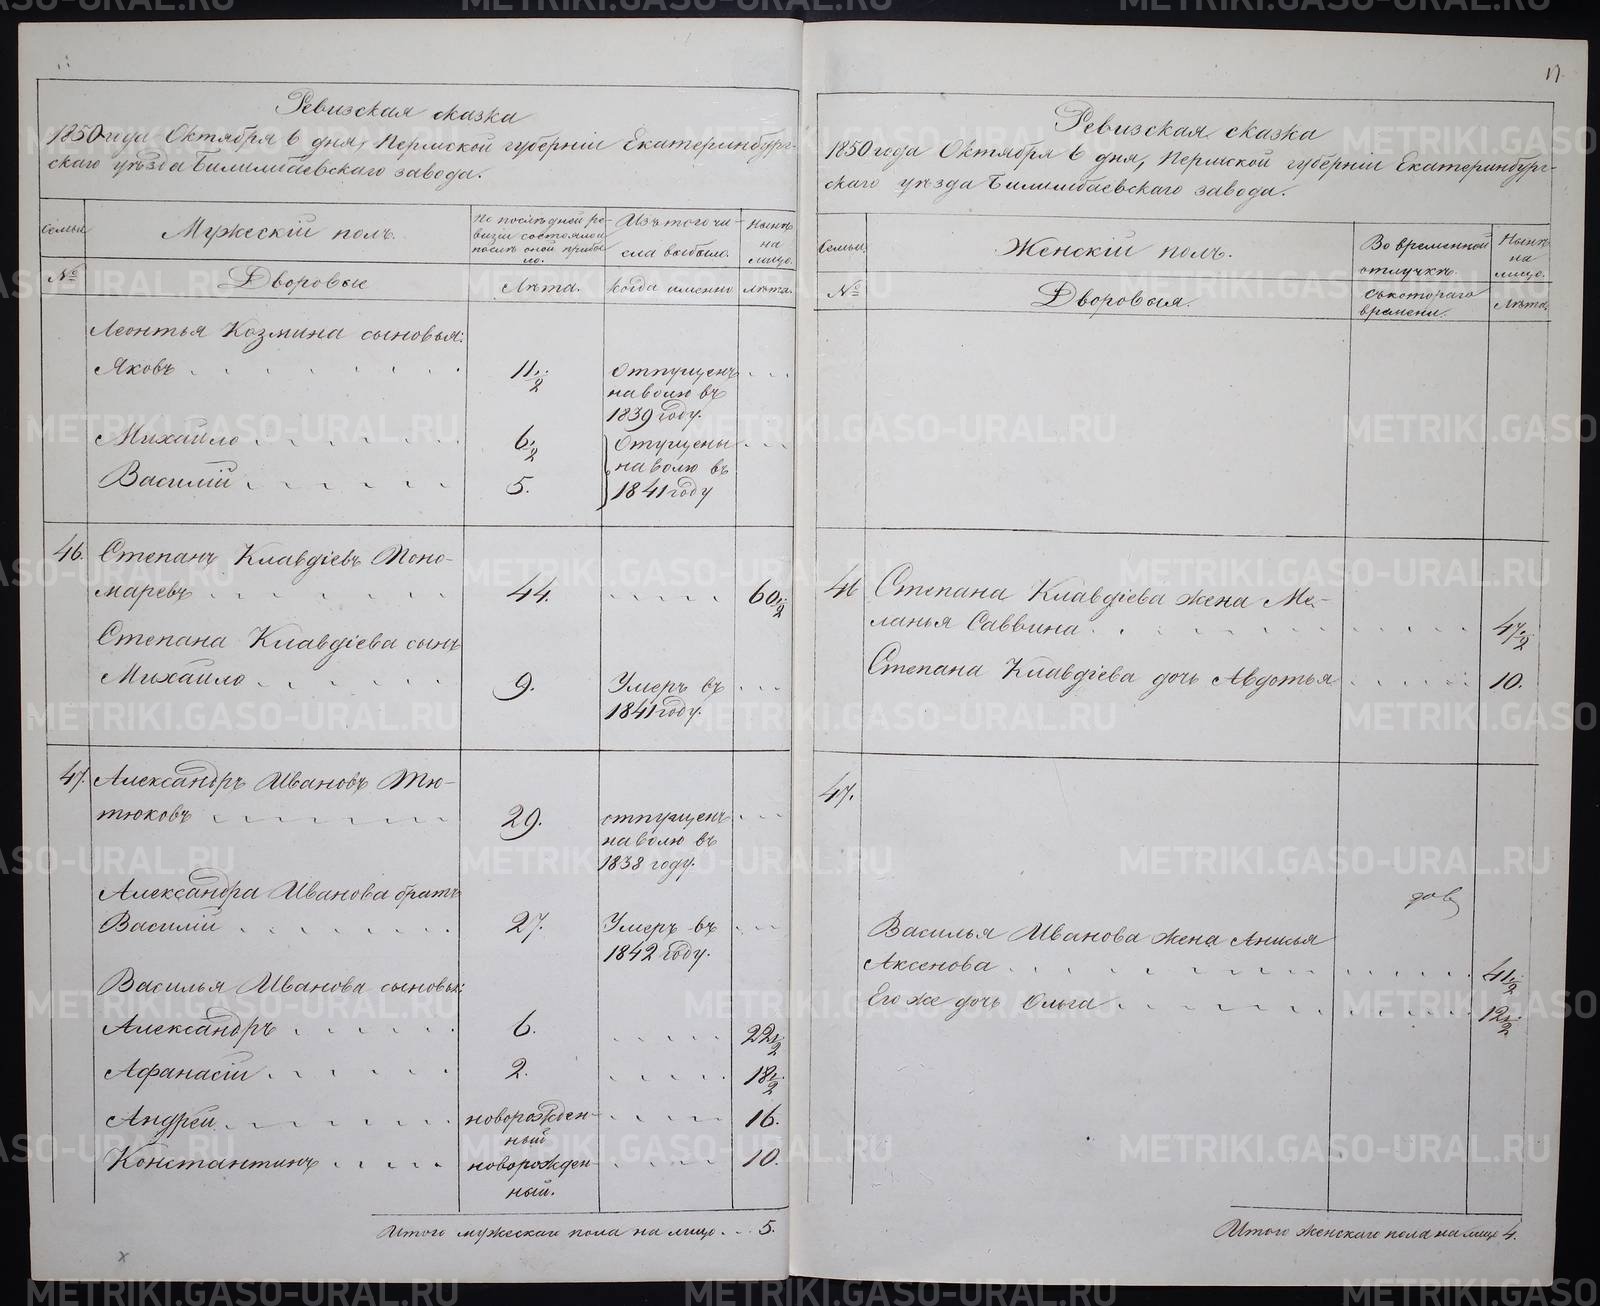 Ревизская сказка
1850 года Октября 6 дня, Пермской губерніи Екатеринбург-
скаго уѣзда Билимбаевскаго завода.
Семьи
Мужескій полъ.
По послѣдней ре-
визіи состояло и
послѣ оной прибы-
ло.
Изъ того чи-
сла выбыло.
Нынѣ
на
лицо.
№
Дворовые
Лѣта.
Когда именно
лѣта.
Леонтья Козмина сыновья:
Яковъ . . . . . . . 11 1/2 отпущенъ . . .
на волю въ
1839 году.
Михайло . . . . . . 6 1/2 Отпущены . . .
на волю въ
Василій . . . . . . 5. 1841 году
46. Степанъ Клавдіевъ Поно-
маревъ . . . . . . 44. . . . . . 60 1/2
Степана Клавдіева сынъ
Михайло . . . . . 9. Умеръ въ . . .
1841 году.
47. Александръ Ивановъ Тю-
тюковъ . . . . . . 29. отпущенъ . . .
на волю въ
1838 году.
Александра Иванова братъ
Василій . . . . . . 27. Умеръ въ . . .
1842 году.
Василья Иванова сыновья:
Александръ . . . . . 6. . . . . . 22 1/2
Афанасій . . . . . . 2. . . . . . 18 1/2
Андрей . . . . . . новорожден- . . . . . 16.
ный
Константинъ . . . . . новорожден- . . . . . 10.
ный.
Итого мужескаго пола на лицо . . . 5.
17
Ревизская сказка
1850 года Октября 6 дня, Пермской губерніи Екатеринбург-
скаго уѣзда Билимбаевскаго завода.
Семьи
Женскій полъ.
Во временной
отлучкѣ.
Нынѣ
на
лицо.
№
Дворовыя.
Съ котораго
времени.
Лѣта.
46 Степана Клавдіева жена Ме-
ланья Саввина . . . . . . . . 47 1/2
Степана Клавдіева дочь Авдотья . . . . . 10.
47.
Василья Иванова жена Анисья
Аксенова . . . . . . . . . . 41 1/2
Его же дочь Ольга . . . . . . . . . 12 1/2
Итого женскаго пола на лицо 4.
METRIKI.GASO-URAL.RU